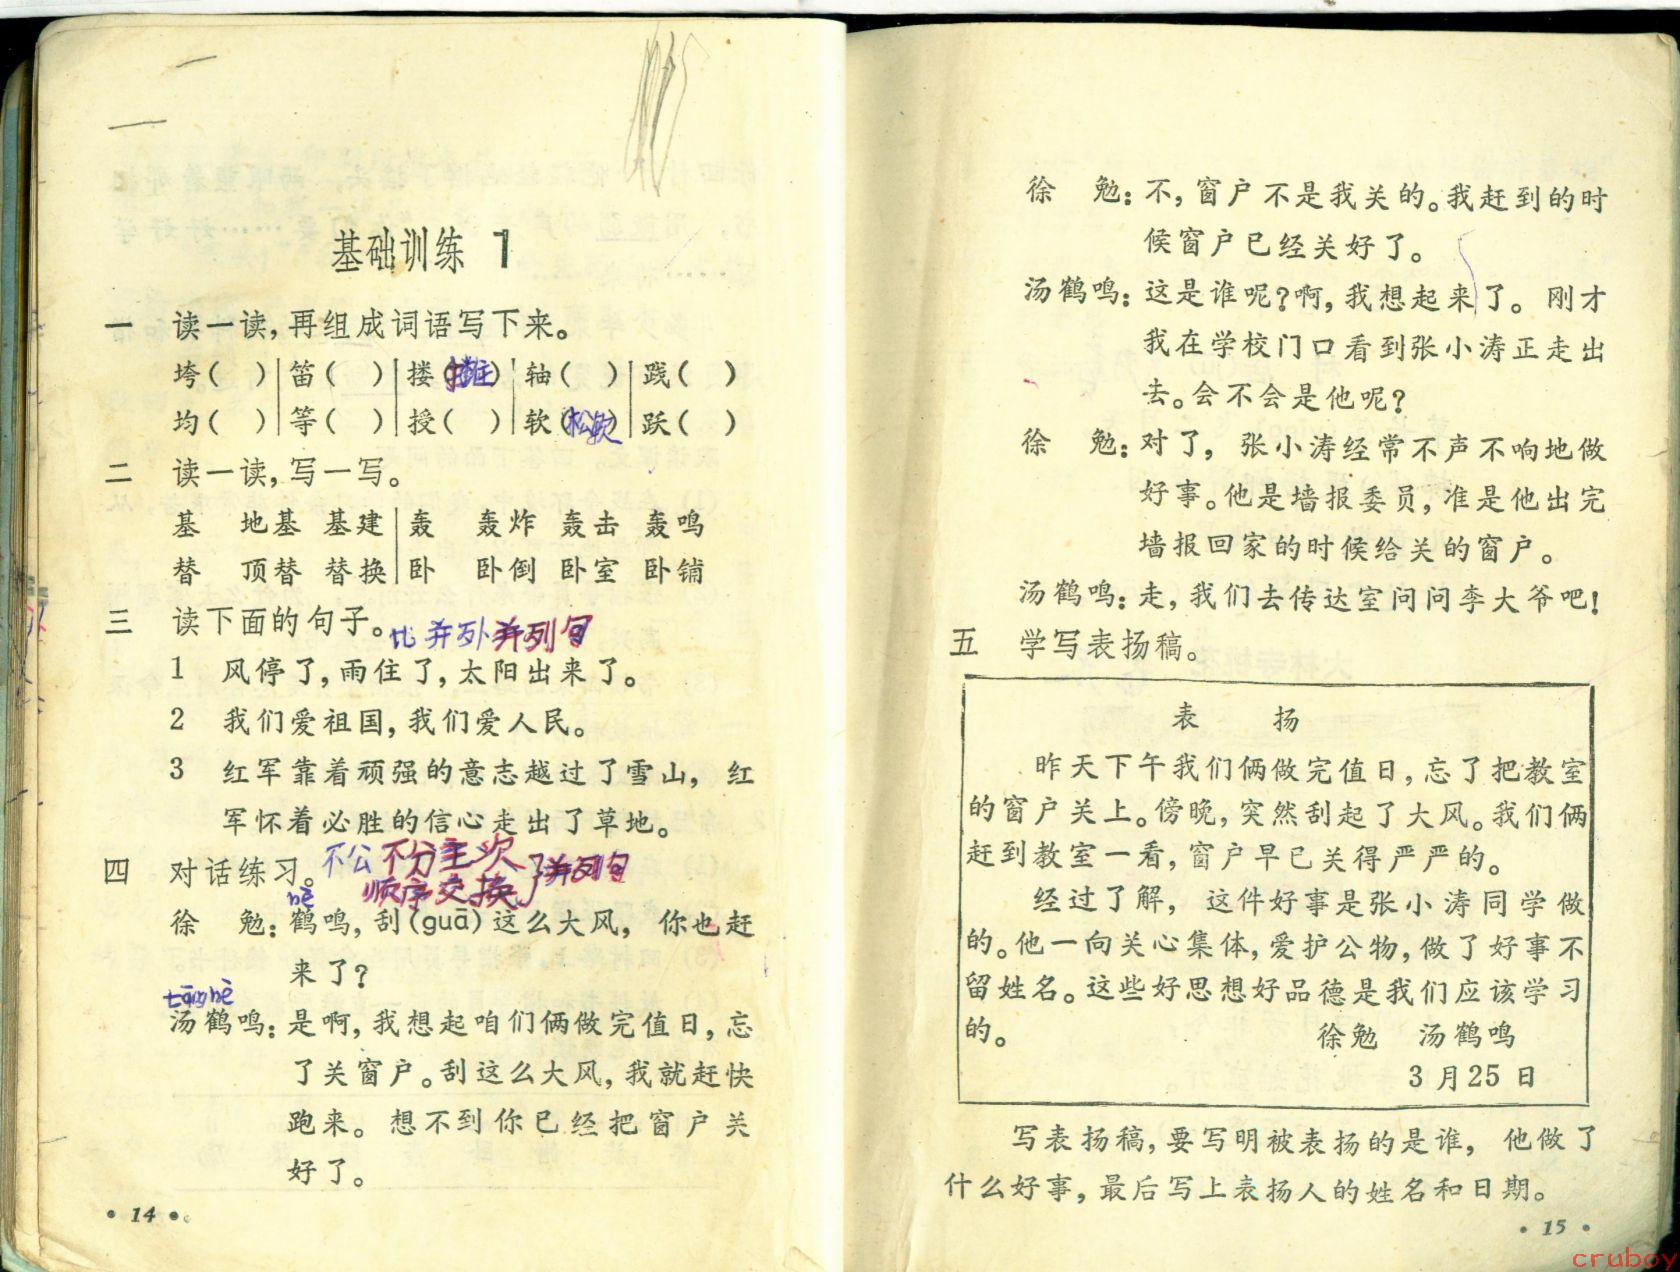 基础训练 1
一 读一读,再组成词语写下来。
垮( ) 笛( ) 搂(搂住) 轴( ) 践( )
均( ) 等( ) 授( ) 软(松软) 跃( )
二 读一读,写一写。
基 地基 基建 轰 轰炸 轰击 轰鸣
替 顶替 替换 卧 卧倒 卧室 卧铺
三 读下面的句子。
比 并列 并列句
1 风停了,雨住了,太阳出来了。
2 我们爱祖国,我们爱人民。
3 红军靠着顽强的意志越过了雪山, 红
军怀着必胜的信心走出了草地。
四 对话练习。
不公 不分主次 并列句
顺序交换
hè
徐 勉:鹤鸣,刮(guā)这么大风, 你也赶
来了?
tāng hè
汤鹤鸣:是啊,我想起咱们俩做完值日,忘
了关窗户。刮这么大风,我就赶快
跑来。 想不到你已经把窗户关
好了。
• 14 •
徐 勉:不,窗户不是我关的。我赶到的时
候窗户已经关好了。
汤鹤鸣:这是谁呢?啊,我想起来了。 刚才
我在学校门口看到张小涛正走出
去。会不会是他呢?
徐 勉:对了, 张小涛经常不声不响地做
好事。他是墙报委员,准是他出完
墙报回家的时候给关的窗户。
汤鹤鸣:走,我们去传达室问问李大爷吧!
五 学写表扬稿。
表 扬
昨天下午我们俩做完值日,忘了把教室
的窗户关上。傍晚,突然刮起了大风。我们俩
赶到教室一看,窗户早已关得严严的。
经过了解, 这件好事是张小涛同学做
的。他一向关心集体,爱护公物,做了好事不
留姓名。这些好思想好品德是我们应该学习
的。
徐勉 汤鹤鸣
3月25日
写表扬稿,要写明被表扬的是谁, 他做了
什么好事,最后写上表扬人的姓名和日期。
• 15 •
cruboy